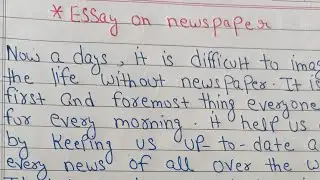 *Essay on newspaper
Now a days, it is difficult to ima
the life without newspaper. It is
first and foremost thing everyone
for every morning. it help us
by keeping us up-to-date a
every news of all over the w